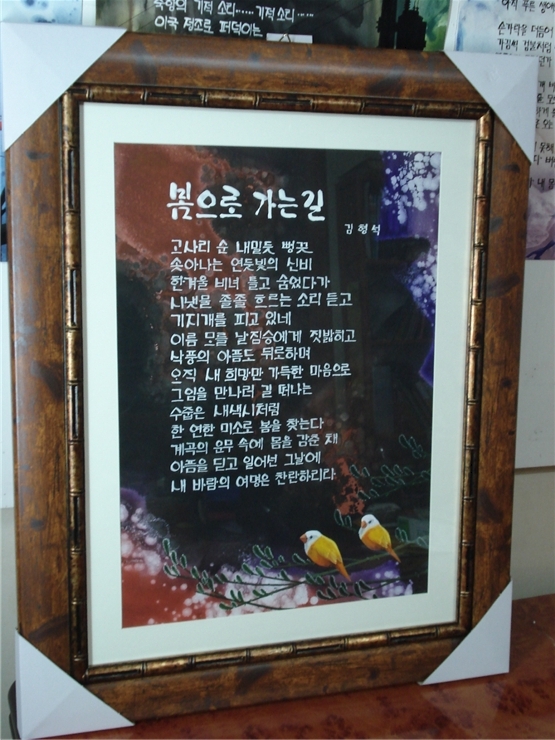 기적 소리......기적 소리....
이국 정조로 퍼덕이는
봄으로 가는길
김형석
고사리 순 내밀듯 빵끗
솟아나는 연둣빛의 신비
한겨울 비녀 틀고 숨었다가
시냇물 졸졸 흐르는 소리 듣고
기지개를 피고 있네
이름 모를 날짐승에게 짓밟히고
낙풍의 아픔도 뒤로하며
오직 새 희망만 가득한 마음으로
그임을 만나러 길 떠나는
수줍은 새색시처럼
한 연한 미소로 봄을 찾는다
계곡의 운무 속에 몸을 감춘 채
아픔을 딛고 일어선 그날에
새 바람의 여명은 찬란하리라